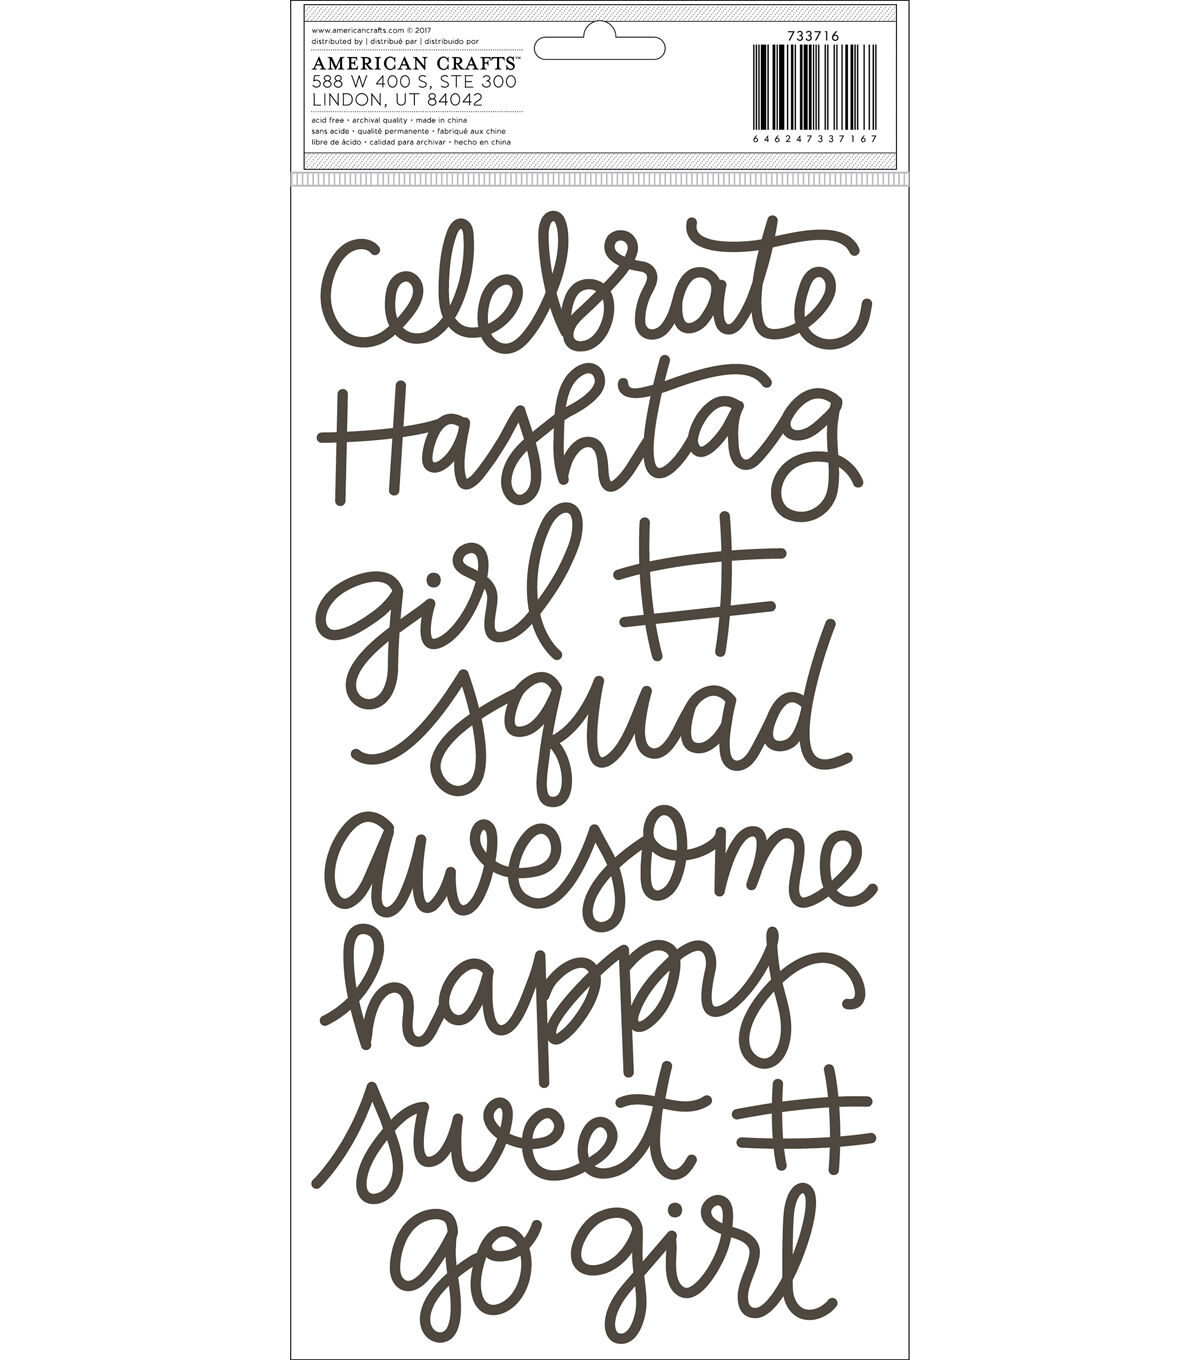 www.americancrafts.com © 2017
distributed by | distribué par | distribuido por
AMERICAN CRAFTS™
588 W 400 S, STE 300
LINDON, UT 84042
acid free • archival quality • made in china
sans acide • qualité permanente • fabriqué aux chine
libre de ácido • calidad para archivar • hecho en china
733716
646247337167
Celebrate
Hashtag
girl #
squad
awesome
happy
sweet #
go girl